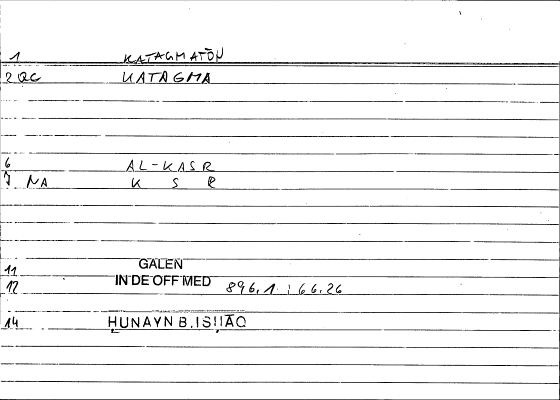 1 KATAGMATŌN
2 QC KATAGMA
6 AL-KASR
7 NA K S R
11 GALEN
12 IN DE OFF MED 896,1 : 66.26
14 ḤUNAYN B. ISḤĀQ